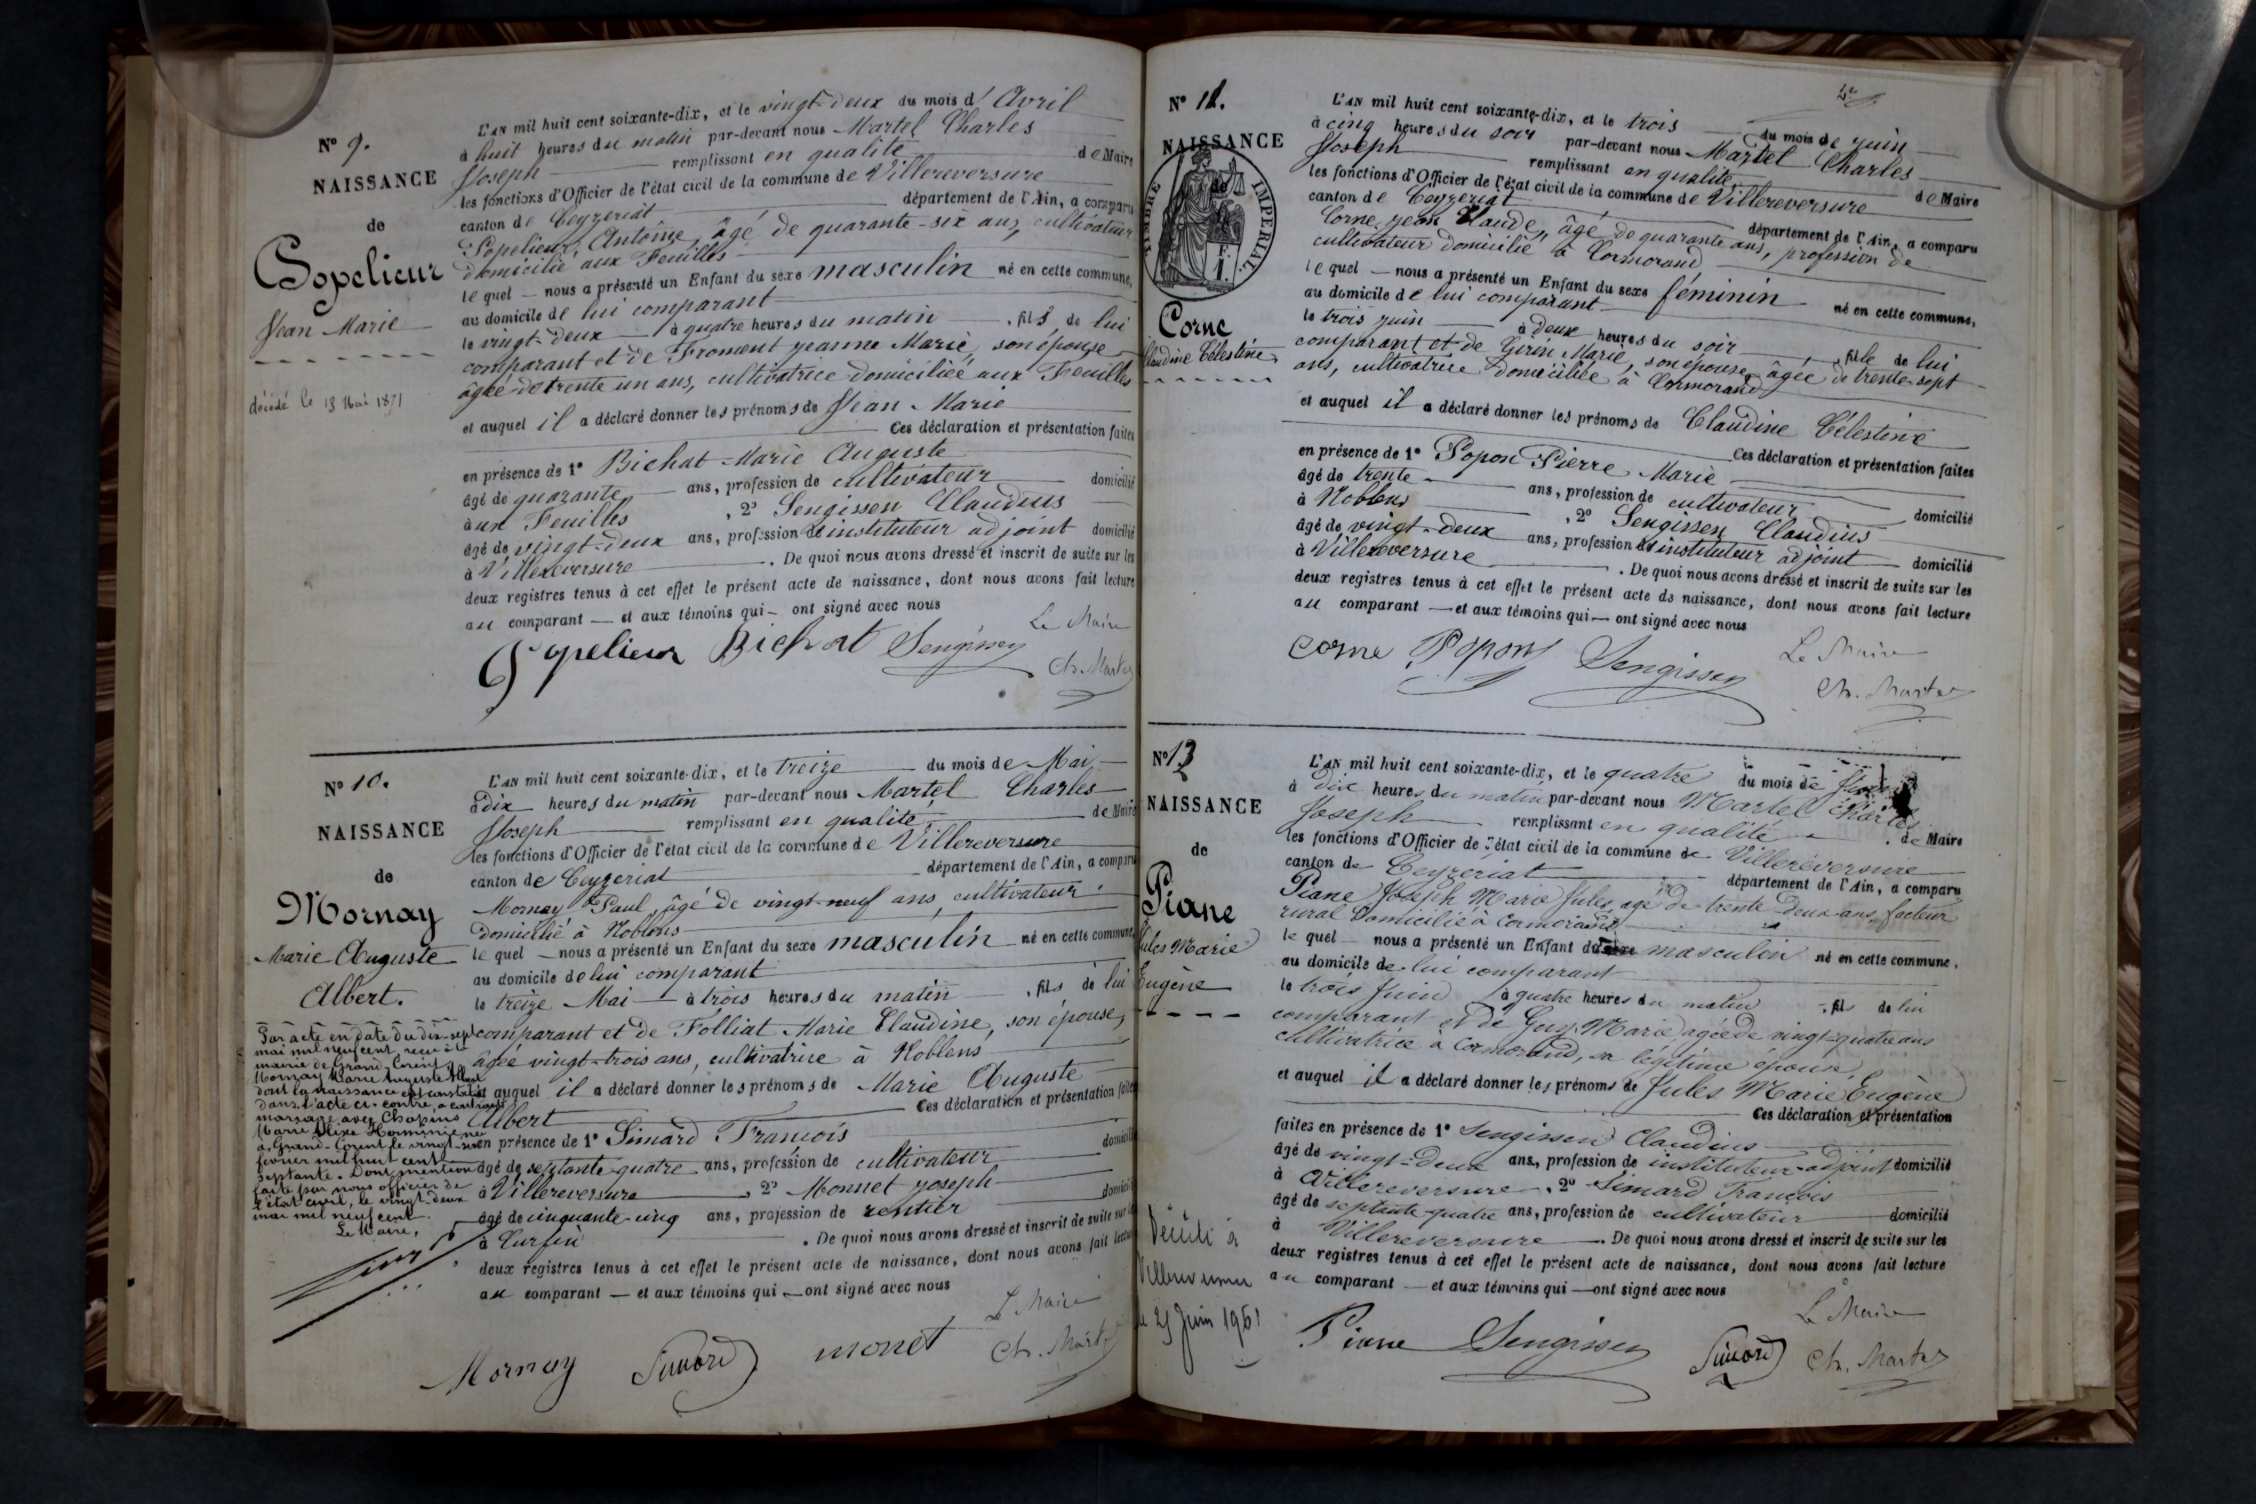 N° 9.
NAISSANCE
de
Popelieur
Jean Marie
décédé le 13 Mai 1871
L'AN mil huit cent soixante-dix, et le vingt-deux du mois d'Avril
à huit heures du matin par-devant nous Martel Charles
Joseph remplissant en qualité de Maire
les fonctions d'Officier de l'état civil de la commune de Villereversure
canton de Ceyzeriat département de l'Ain, a comparu
Popelieur Antoine âgé de quarante-six ans, cultivateur
domicilié aux Feuilles
le quel — nous a présenté un Enfant du sexe masculin né en cette commune,
au domicile de lui comparant
le vingt-deux à quatre heures du matin, fils de lui
comparant et de Froment jeanne Marie, son épouse
âgée de trente un ans, cultivatrice domiciliée aux Feuilles
et auquel il a déclaré donner les prénoms de Jean Marie
Ces déclaration et présentation faites
en présence de 1° Bichat Marie Auguste
âgé de quarante ans, profession de cultivateur domicilié
aux Feuilles, 2° Sengissen Claudius
âgé de vingt-deux ans, profession de instituteur adjoint domicilié
à Villereversure. De quoi nous avons dressé et inscrit de suite sur les
deux registres tenus à cet effet le présent acte de naissance, dont nous avons fait lecture
au comparant — et aux témoins qui — ont signé avec nous
Popelieur Bichat Sengissen
Le Maire
Ch. Martel
N° 10.
NAISSANCE
de
Mornay
Marie Auguste
Albert.
Par acte en date du dix-sept
mai mil neuf cent, reçu à la
mairie de Grand-Corent,
Mornay Marie Auguste Albert
dont la naissance est constatée
dans l'acte ci-contre, a contracté
mariage avec Chapuis
Marie Herminie née
à Grand-Corent le vingt-
février mil huit cent
septante. Dont mention
faite par nous officier de
l'état civil, le vingt-deux
mai mil neuf cent.
Le Maire,
L'AN mil huit cent soixante-dix, et le treize du mois de Mai
à dix heures du matin par-devant nous Martel Charles
Joseph remplissant en qualité de Maire
les fonctions d'Officier de l'état civil de la commune de Villereversure
canton de Ceyzeriat département de l'Ain, a comparu
Mornay Paul, âgé de vingt-neuf ans, cultivateur
domicilié à Noblens
le quel — nous a présenté un Enfant du sexe masculin né en cette commune,
au domicile de lui comparant
le treize Mai à trois heures du matin, fils de lui
comparant et de Folliat Marie Claudine, son épouse,
âgée vingt-trois ans, cultivatrice à Noblens
et auquel il a déclaré donner les prénoms de Marie Auguste
Albert Ces déclaration et présentation faites
en présence de 1° Simard François
âgé de septante-quatre ans, profession de cultivateur domicilié
à Villereversure, 2° Monnet joseph
âgé de cinquante-cinq ans, profession de rentier domicilié
à . De quoi nous avons dressé et inscrit de suite sur les
deux registres tenus à cet effet le présent acte de naissance, dont nous avons fait lecture
au comparant — et aux témoins qui — ont signé avec nous
Le Maire
Mornay Simard monet Ch. Martel
N° 11.
NAISSANCE
de
TIMBRE IMPERIAL
F.
1.
Corne
Claudine Célestine
L'AN mil huit cent soixante-dix, et le trois du mois de juin
à cinq heures du soir par-devant nous Martel Charles
Joseph remplissant en qualité de Maire
les fonctions d'Officier de l'état civil de la commune de Villereversure
canton de Ceyzeriat département de l'Ain, a comparu
Corne jean Claude, âgé de quarante ans, profession de
cultivateur domicilié à Cormorand
le quel — nous a présenté un Enfant du sexe féminin né en cette commune,
au domicile de lui comparant
le trois juin à deux heures du soir, fille de lui
comparant et de Girin Marie, son épouse, âgée de trente-sept
ans, cultivatrice domiciliée à Cormorand
et auquel il a déclaré donner les prénoms de Claudine Célestine
Ces déclaration et présentation faites
en présence de 1° Popon Pierre Marie
âgé de trente ans, profession de cultivateur domicilié
à Noblens, 2° Sengissen Claudius
âgé de vingt-deux ans, profession de instituteur adjoint domicilié
à Villereversure. De quoi nous avons dressé et inscrit de suite sur les
deux registres tenus à cet effet le présent acte de naissance, dont nous avons fait lecture
au comparant — et aux témoins qui — ont signé avec nous
Corne Popon Sengissen
Le Maire
Ch. Martel
N° 12
NAISSANCE
de
Piane
Jules Marie
Eugène
Décédé à
Villereversure
le 25 Juin 1961
L'AN mil huit cent soixante-dix, et le quatre du mois de Juin
à dix heures du matin par-devant nous Martel Charles
Joseph remplissant en qualité de Maire
les fonctions d'Officier de l'état civil de la commune de Villereversure
canton de Ceyzériat département de l'Ain, a comparu
Piane Joseph Marie Jules, age de trente deux ans, facteur
rural domicilié à Cormorand
le quel nous a présenté un Enfant du sexe masculin né en cette commune,
au domicile de lui comparant
le trois Juin à quatre heures du matin, fils de lui
comparant et de Guy Marie agée de vingt-quatre ans
cultivatrice à Cormorand, sa légitime épouse,
et auquel il a déclaré donner les prénoms de Jules Marie Eugène
Ces déclaration et présentation
faites en présence de 1° Sengissen Claudius
âgé de vingt-deux ans, profession de instituteur-adjoint domicilié
à Villereversure, 2° Simard François
âgé de septante-quatre ans, profession de cultivateur domicilié
à Villereversure. De quoi nous avons dressé et inscrit de suite sur les
deux registres tenus à cet effet le présent acte de naissance, dont nous avons fait lecture
au comparant — et aux témoins qui — ont signé avec nous
Le Maire
Piane Sengissen Simard Ch. Martel